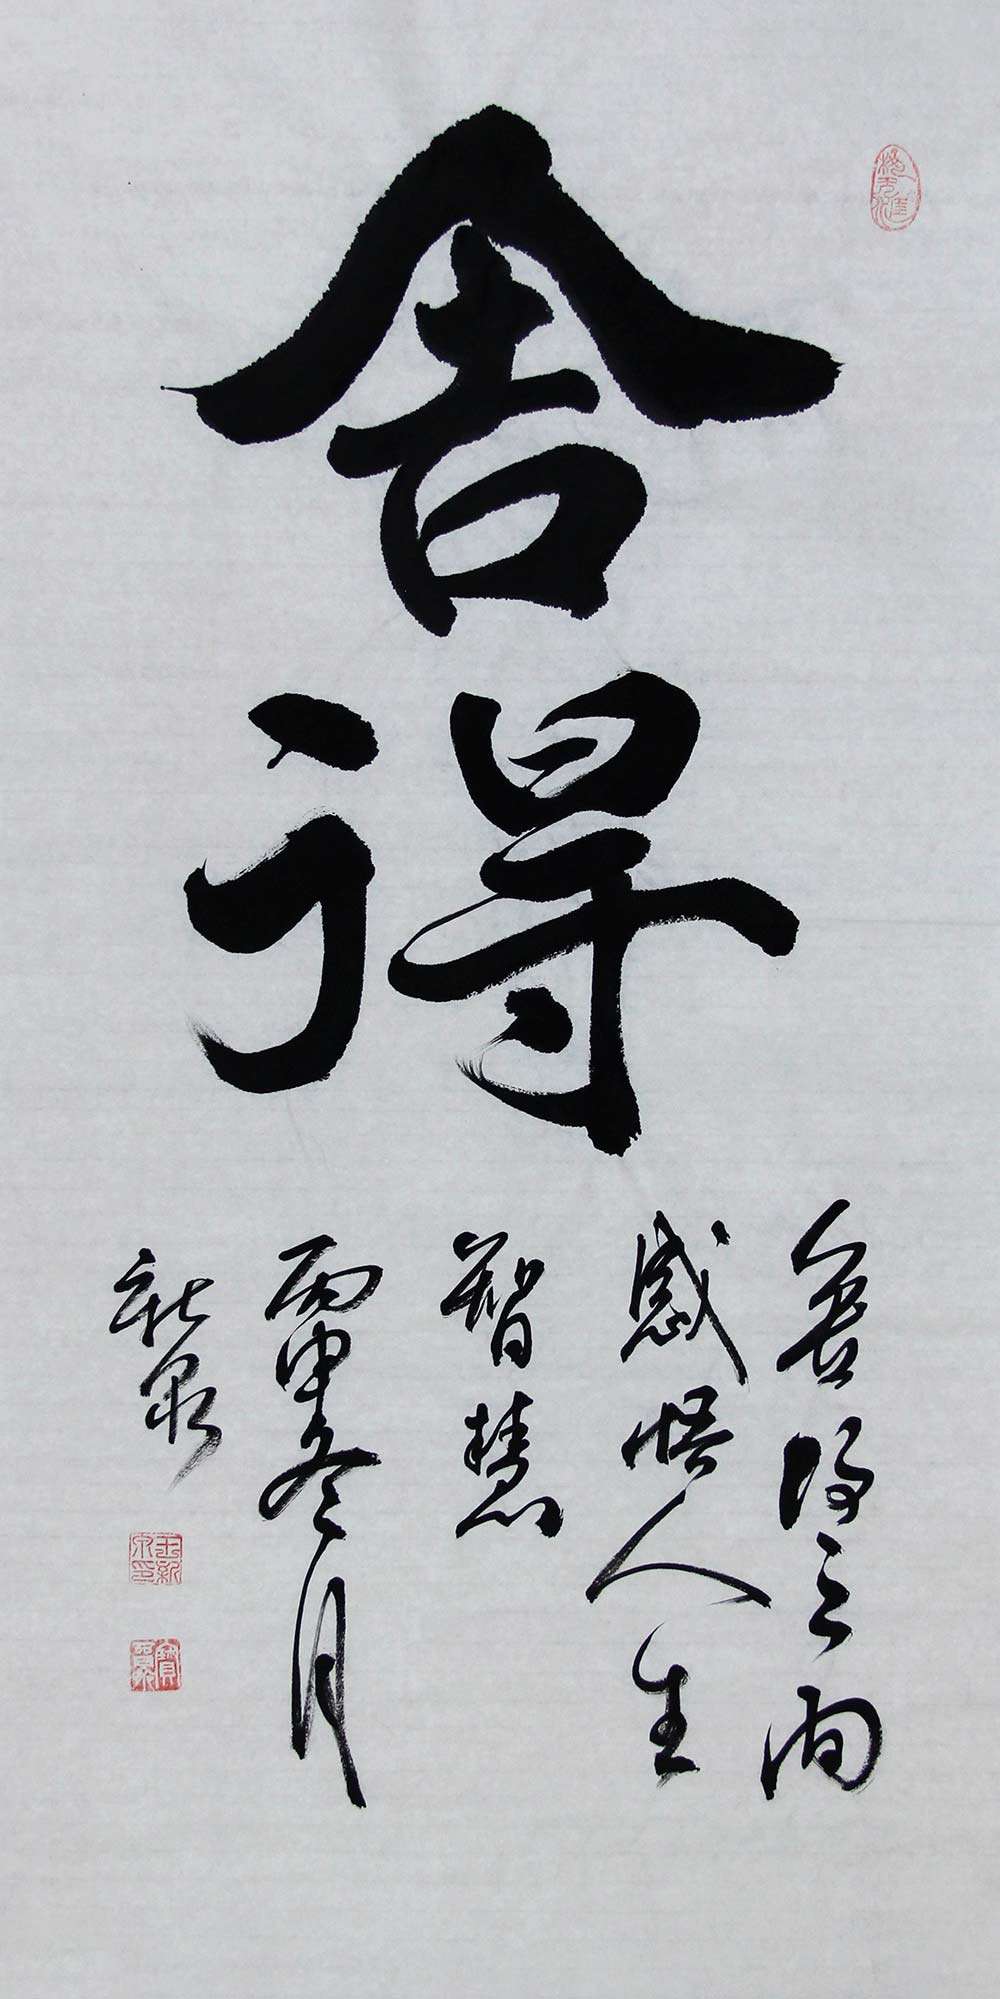 舍得
舍得之间
感悟人生
智慧
丙申冬月
新泉
王新
泉印